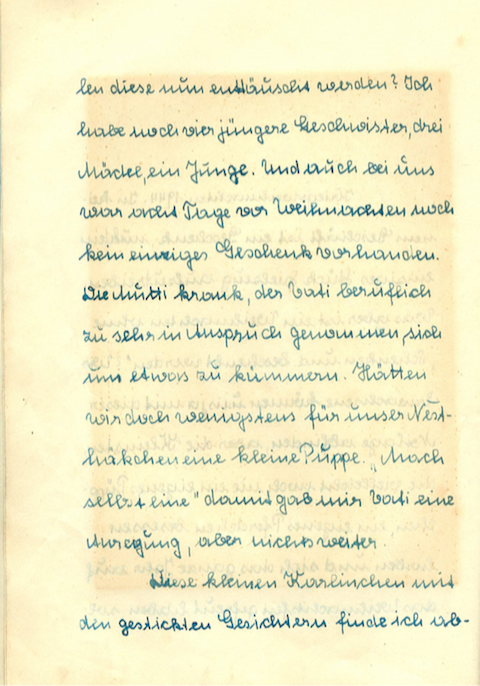 len diese nun enttäuscht werden? Ich
habe noch vier jüngere Geschwister, drei
Mädel, ein Junge. Und auch bei uns
war acht Tage vor Weihnachten noch
kein einziges Geschenk vorhanden.
Die Mutti krank, der Vati beruflich
zu sehr in Anspruch genommen, sich
um etwas zu kümmern. Hätten
wir doch wenigstens für unser Nest-
häkchen eine kleine Puppe. „Mach
selbst eine" damit gab mir Vati eine
Anregung, aber nichts weiter.
Diese kleinen Karlinchen mit
den gestickten Gesichtern finde ich ab-